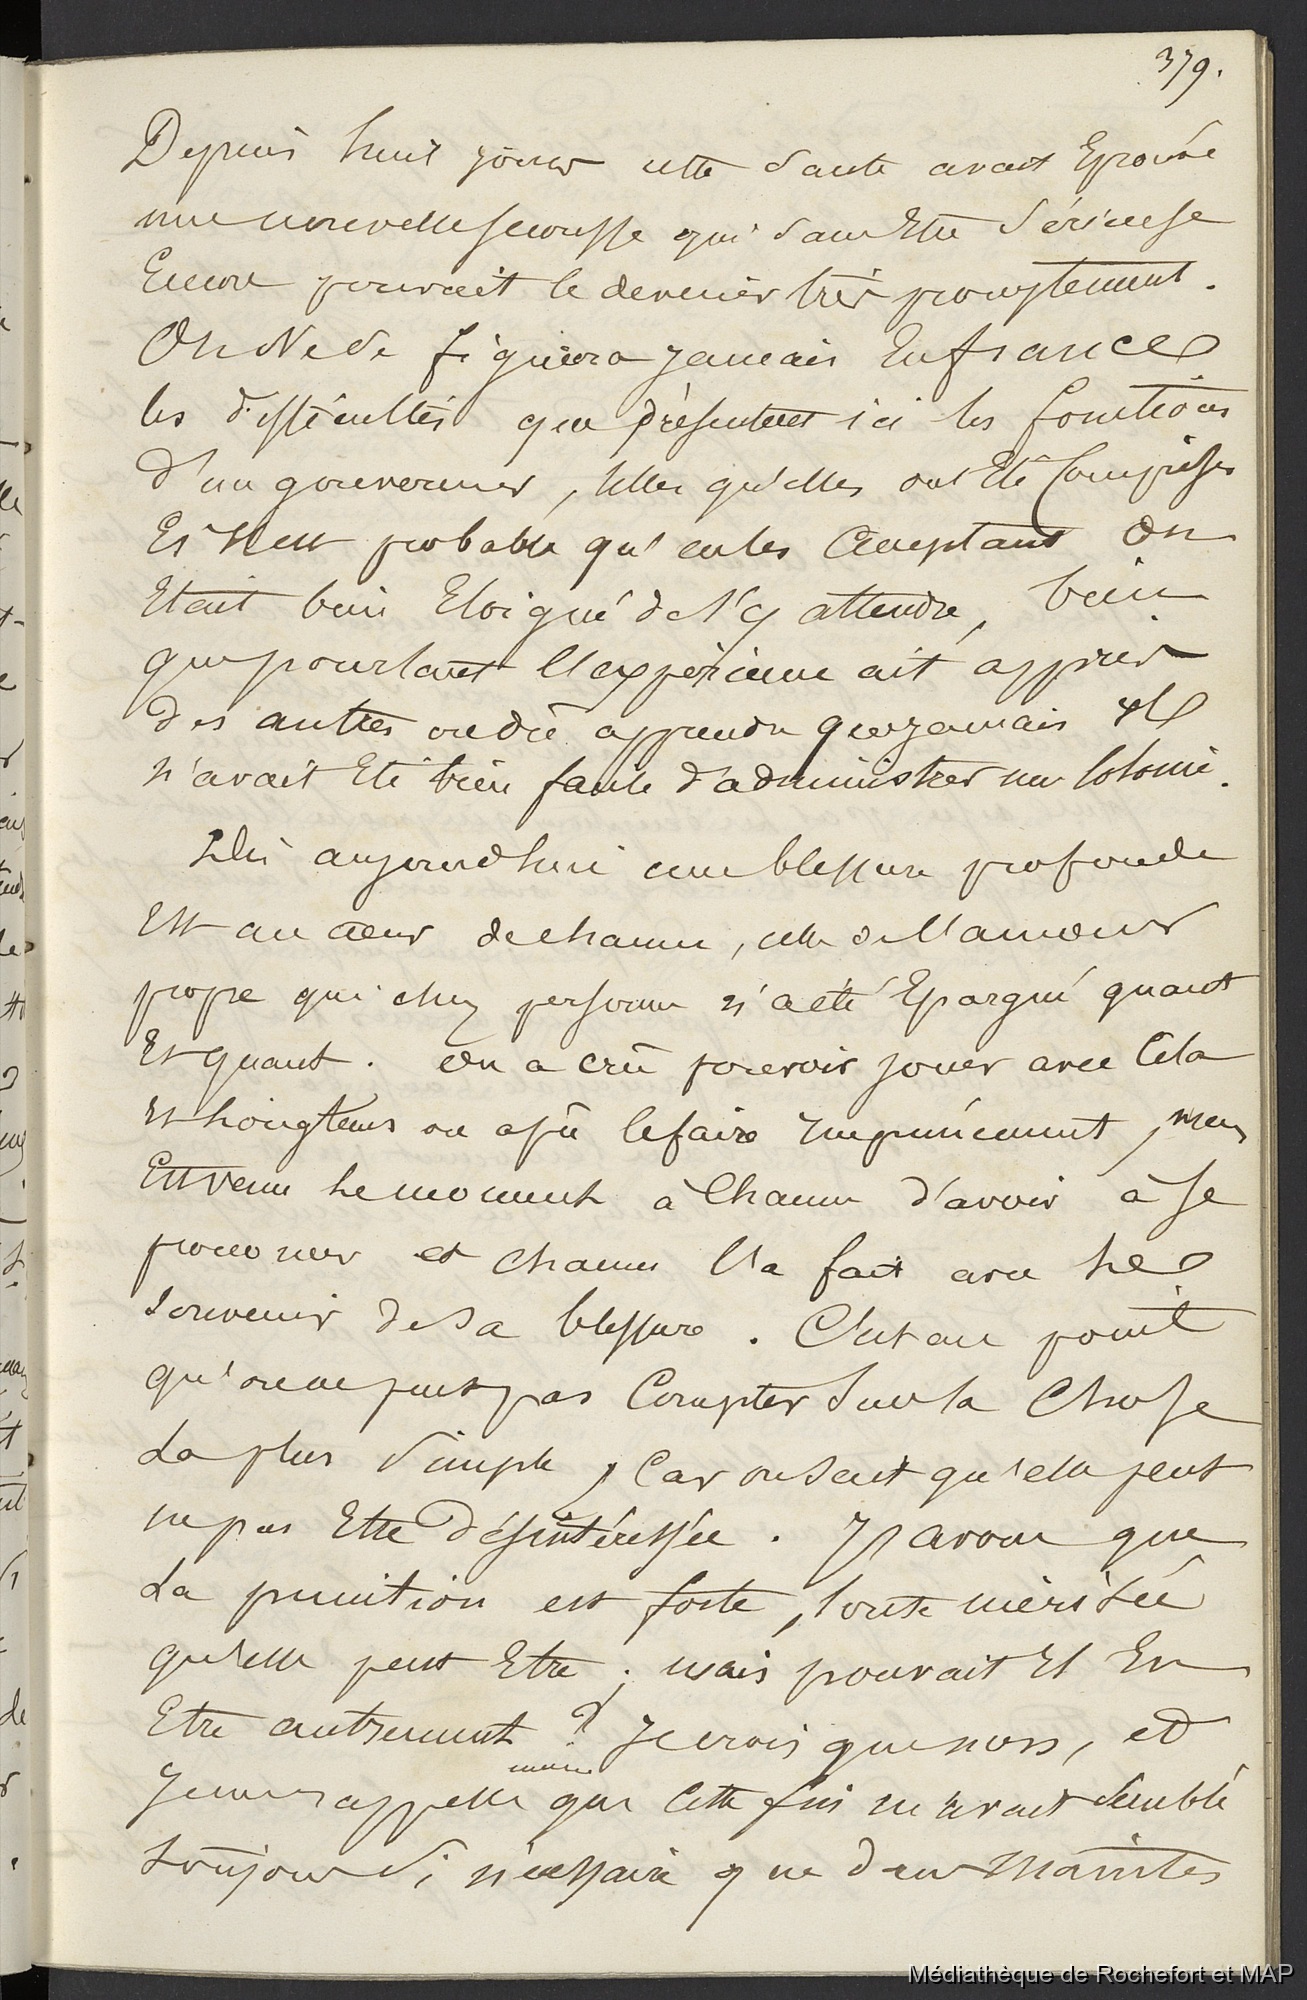 379.
Depuis huit jours cette santé avait Eprouvé
une nouvelle secousse qui sans Etre sérieuse
Encore pouvait le devenir très promptement.
On Ne se figurera jamais En france
les difficultés que présentent ici les fonctions
d'un gouverneur, telles qu'elles ont Eté Comprises
Et Il est probable qu'en les acceptant On
Etait bien Eloigné de s'y attendre, bien
que pourtant l'expérience ait appris
des autres ou dû apprendre que jamais il
n'avait Eté bien facile d'administrer une Colonie.
Dès aujourd'hui une blessure profonde
Est au coeur de chacun, celle de l'amour
propre qui chez personne n'a été Epargné quant
Et quant. On a crû pouvoir jouer avec Cela
et Longtems on a pû le faire impunément, mais
Est venu le moment à Chacun d'avoir à se
prononcer et chacun l'a fait avec le
souvenir de sa blessure. C'est au point
qu'on ne peut pas Compter sur la Chose
La plus simple, Car on sent qu'elle peut
ne pas Etre désintéressée. J'avoue que
La punition est forte, toute méritée
qu'elle peut Etre; mais pouvait Il En
Etre autrement? Je crois que non, et
Je me rappelle même que Cette fin m'avait semblé
toujours si nécessaire que dans Maintes
Médiathèque de Rochefort et MAP